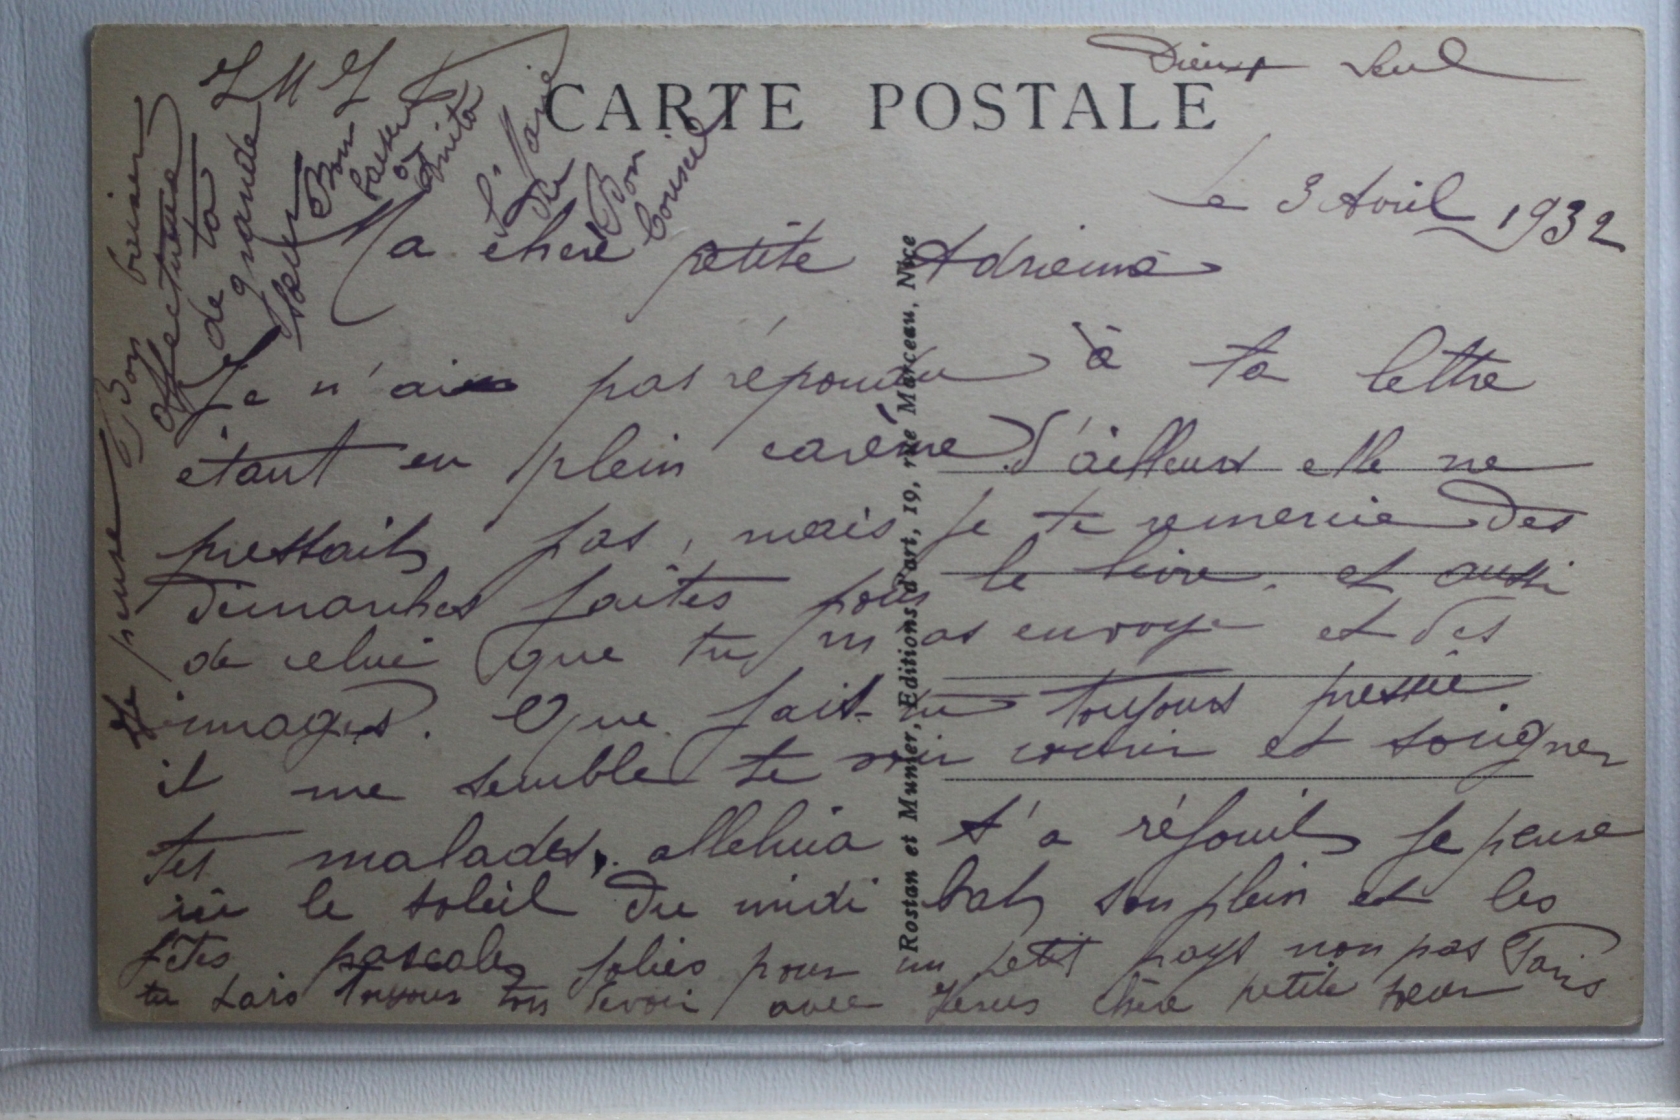 Dieu Seul
J M J
CARTE POSTALE
Le 3 Avril 1932
Ma chère petite Adrienne
Je n'ai pas répondu à ta lettre
étant en plein carême d'ailleurs elle ne
pressait pas, mais je te remercie des
démarches faites pour le livre. et aussi
de celui que tu m'as envoyé et des
images. Que fait-tu toujours pressée
il me semble te voir courir et soigner
tes malades, alleluia t'a réjouit je pense
ici le soleil du midi bat son plein et les
fêtes pascales jolies pour un petit pays non pas Paris
tu sais toujours ton devoir avec Jésus chère petite sœur
Je pense Bon baiser
affectueuse
de ta
grande
Sœur
Bon
baiser
à
Anita
Marie
du
Bon
Conseil
Rostan et Munier, Editions d'art, 19, rue Marceau, Nice